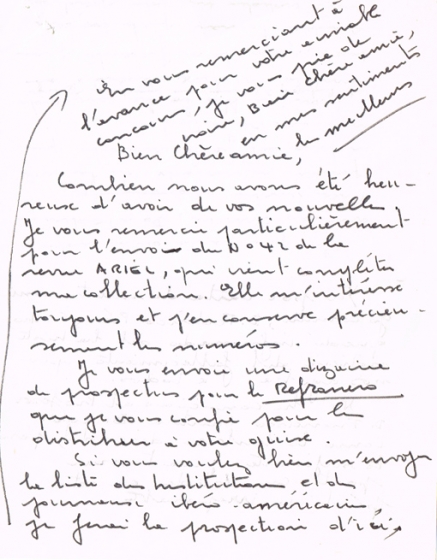 Bien Chère amie,
Combien nous avons été heu-
reuse d'avoir de vos nouvelles
Je vous remercie particulièrement
pour l'envoi du No 42 de la
revue ARIEL, qui vient compléter
ma collection. Elle m'intéresse
toujours et j'en conserve précieu-
sement les numéros.
Je vous envoie une dizaine
de prospectus pour le Refranero
que je vous confie pour les
distribuer à votre guise.
Si vous voulez bien m'envoyer
la liste des Institutions et des
journaux ibéro-américains
je ferai la prospection d'ici,
En vous remerciant à
l'avance pour votre aimable
concours, je vous prie de
croire, Bien Chère amie,
en mes sentiments
les meilleurs